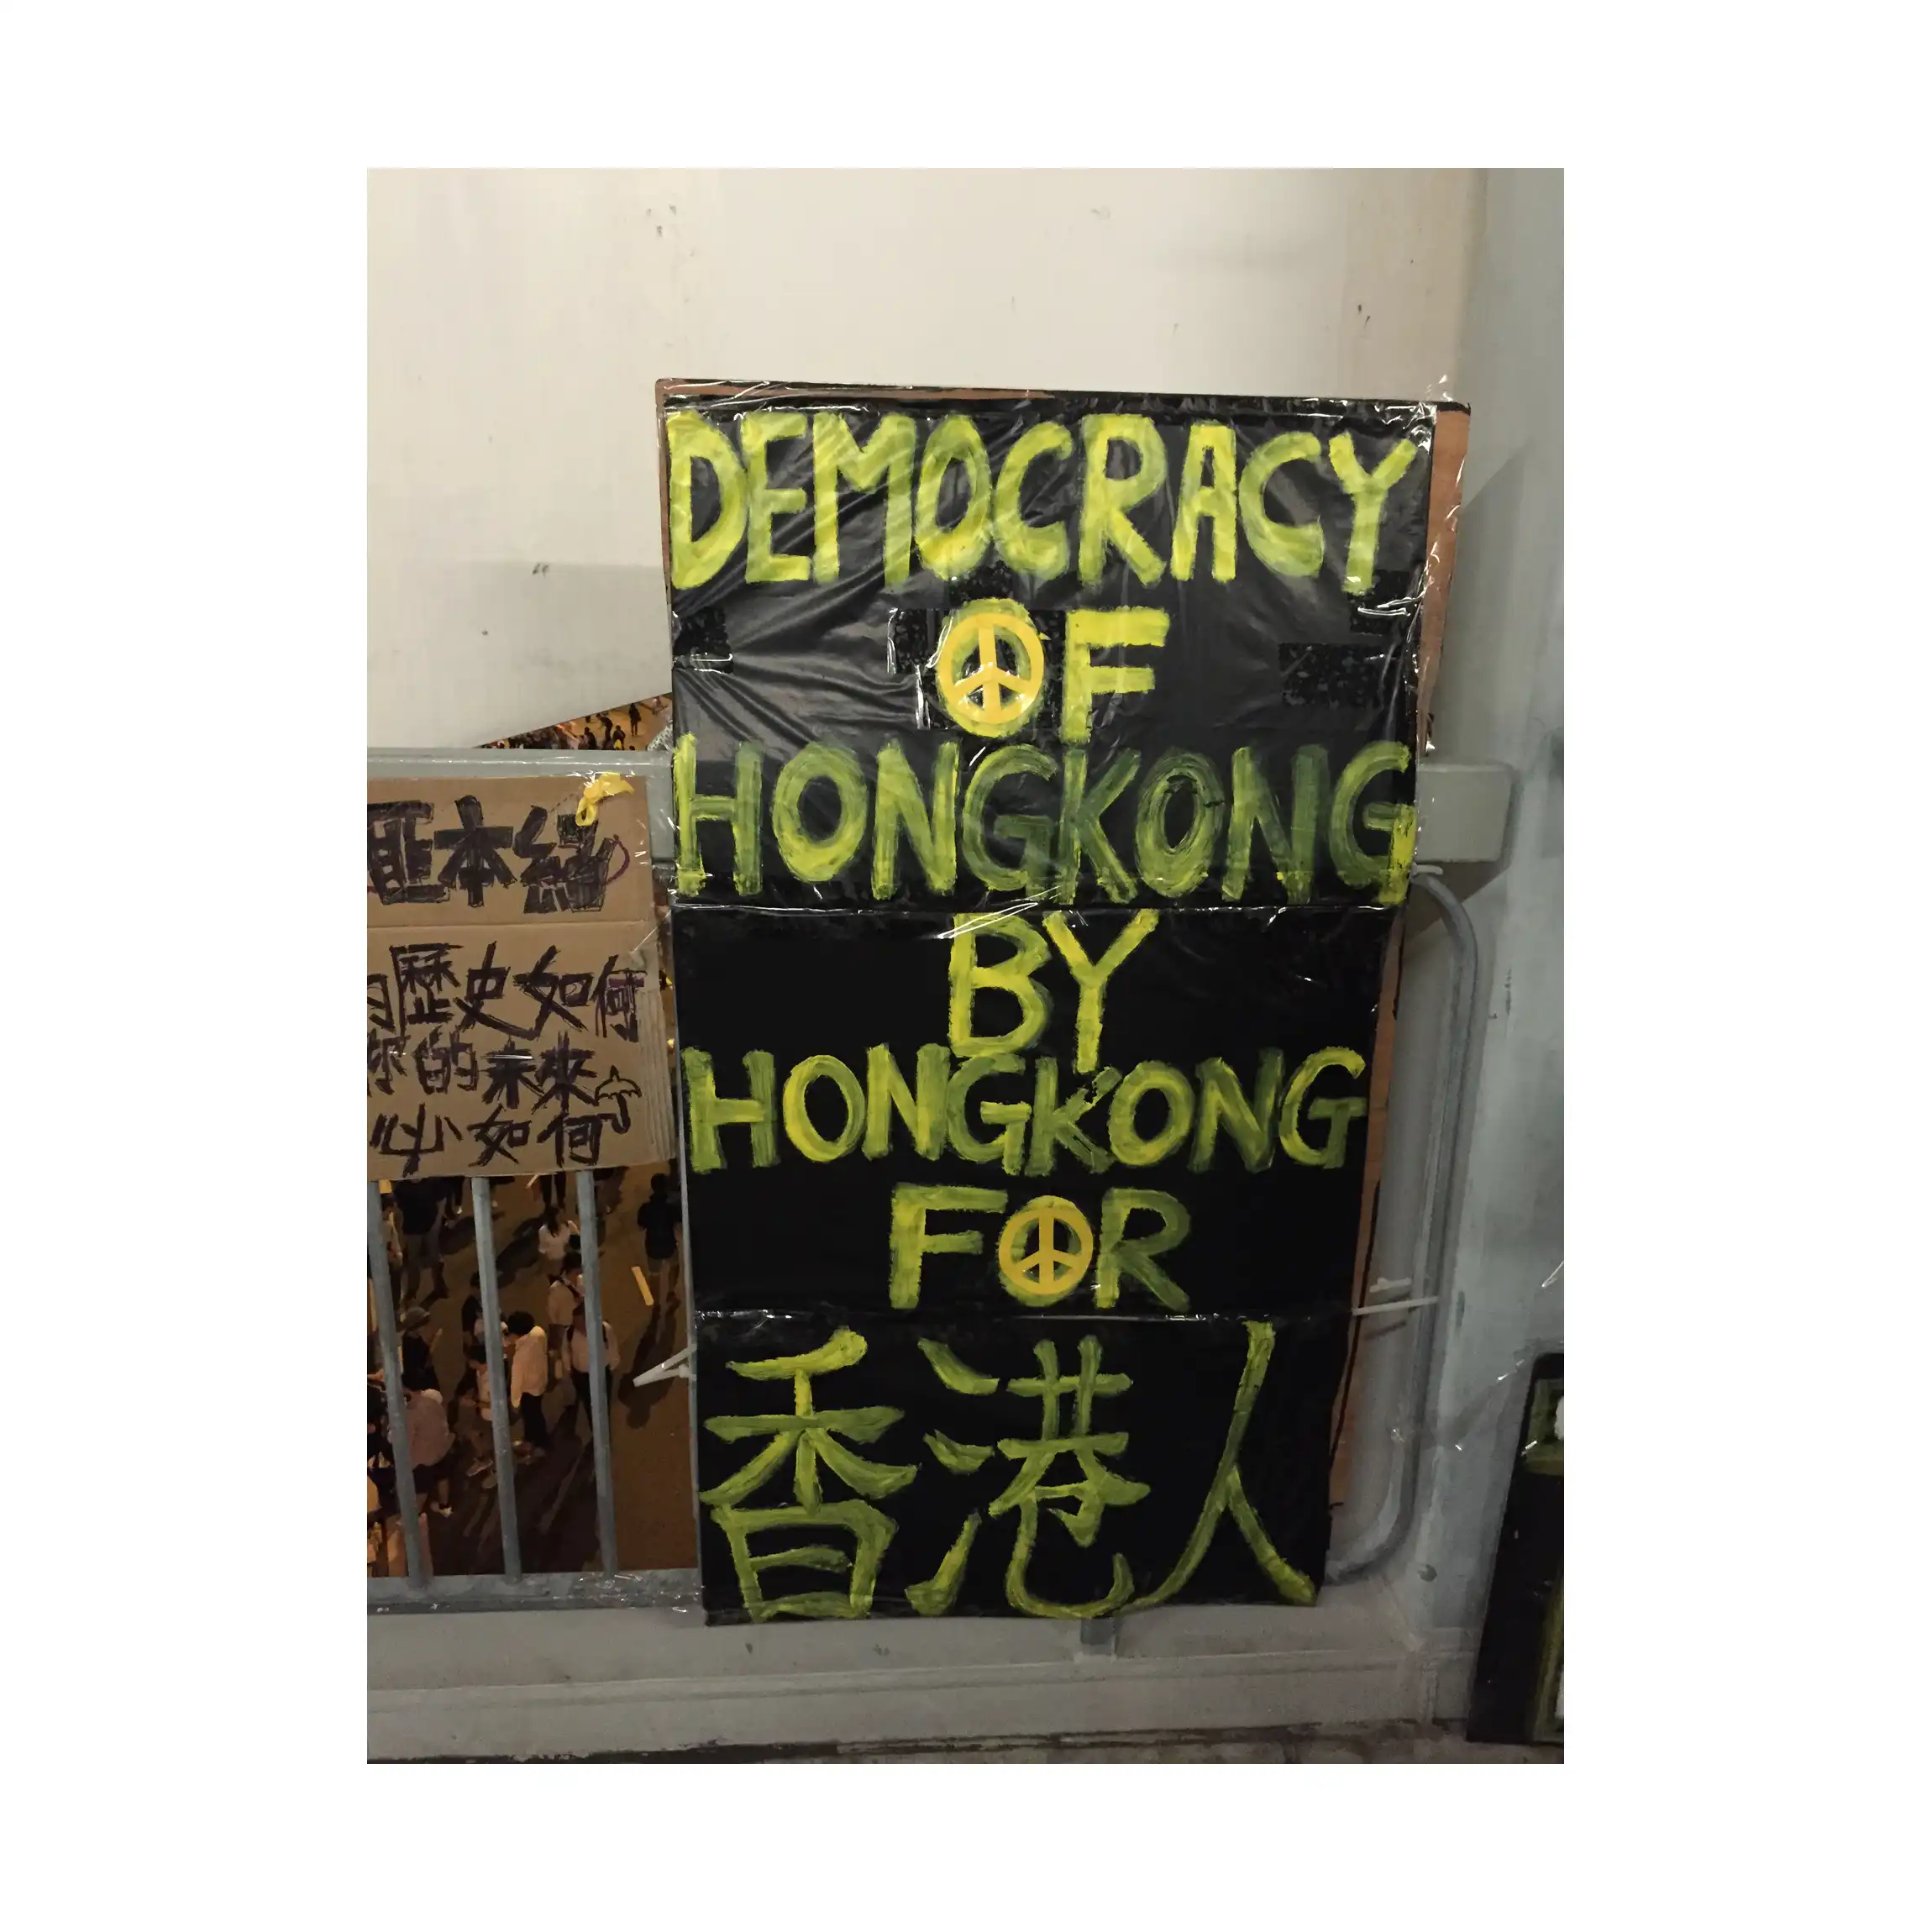 DEMOCRACY
OF
HONGKONG
BY
HONGKONG
FOR
香港人
本
歷史如何
你的未來
必如何